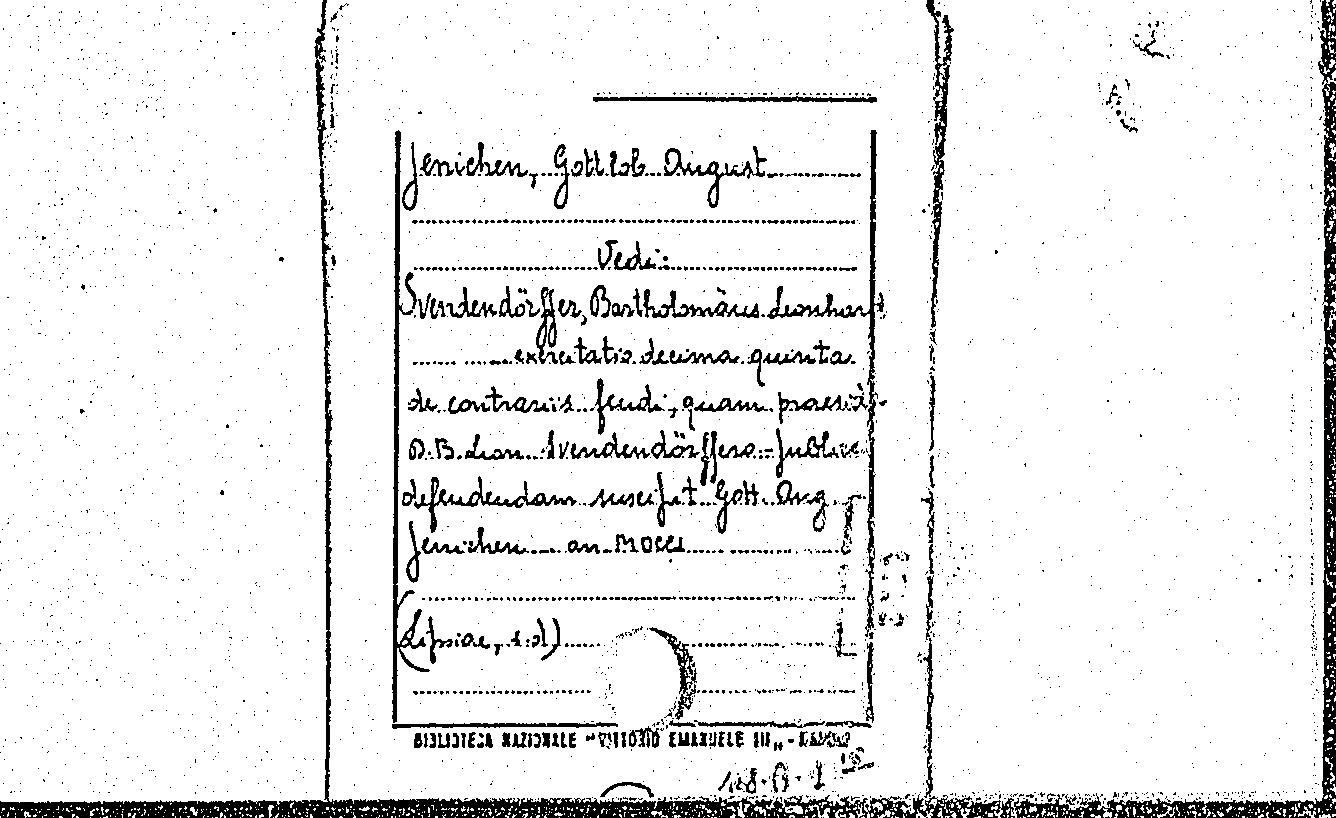 Jenichen, Gottlob August
Vedi:
Svendendörffer, Bartholomäus Leonhart
exercitatio decima quinta
de contrariis feudi, quam praesid.
D.B. Leon. Svendendörffero - public
defendendam suscipit Gott. Aug
Jenichen an
(Lipsiae, s.d)
BIBLIOTECA NAZIONALE "VITTORIO EMANUELE III" - NAPOLI